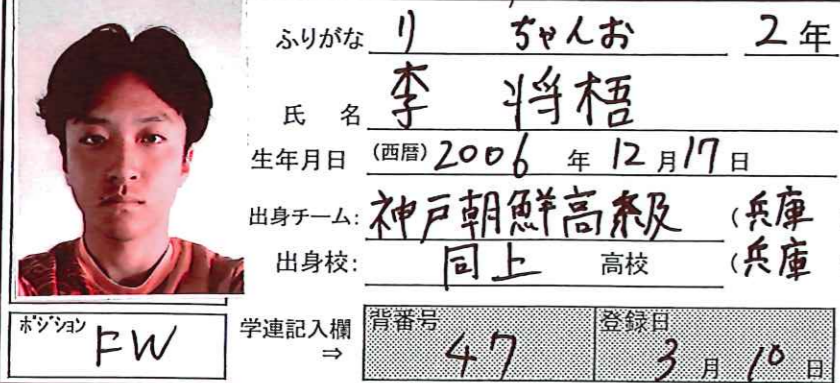 ふりがな り ちゃんお 2年
氏 名 李 将梧
生年月日 (西暦) 2006 年 12 月 17 日
出身チーム: 神戸朝鮮高級 (兵庫
出身校: 同上 高校 (兵庫
ポジション FW
学連記入欄 ⇒ 背番号 47 登録日 3 月 10 日